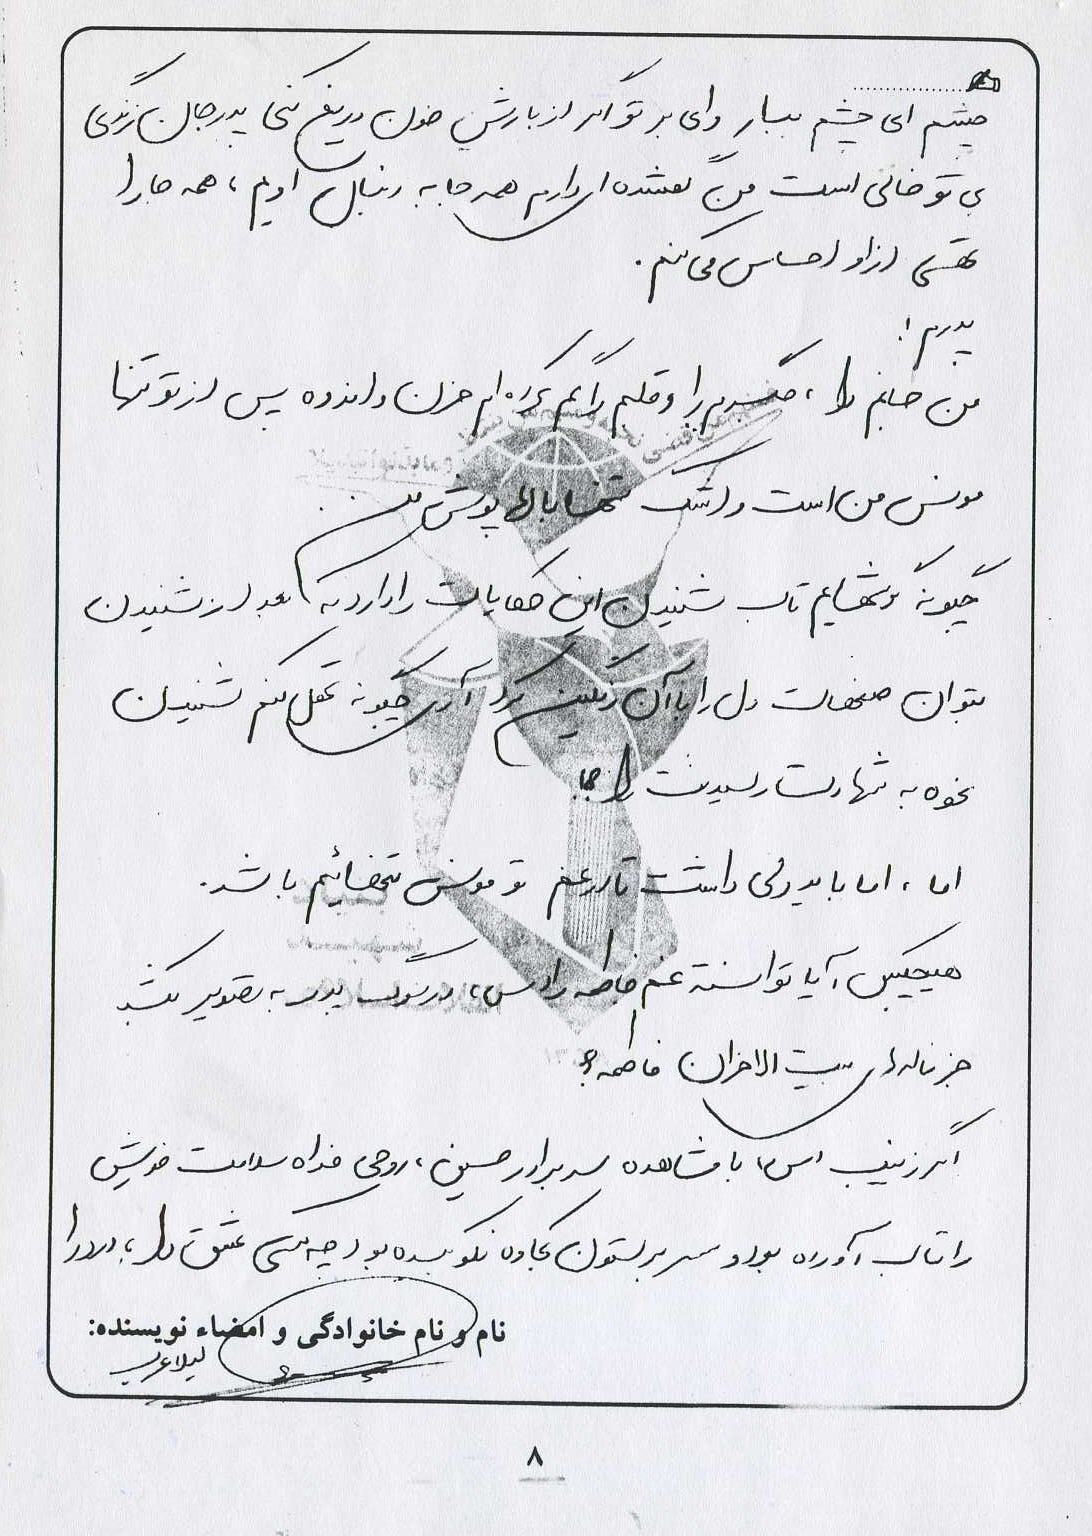 چشم ای چشم ببار وای بر تو اگر از بارش خون دریغ کنی پدر جان زندگی
بی تو خالی است من گمشده ای دارم همه جا به دنبال اویم، همه جا را
تهی از او احساس می کنم.
پدرم!
من جانم را، جگرم را و قلبم را گم کرده ام حزن و اندوه پس از تو تنها
مونس من است و اشک تنها بالاپوش من.
چگونه گوشهایم تاب شنیدن این حکایات را دارد که بعد از شنیدن
بتوان صفحات دل را با آن رنگین کرد آری چگونه تحمل کنم شنیدن
نحوه به شهادت رسیدنت را
اما، اما باید دلی داشت تا در غم تو مونس تنهائیم باشد.
هیچکس، آیا توانسته غم فاطمه را (س)، در سوگ پدر به تصویر بکشد
جز ناله های بیت الاحزان فاطمه؟
اگر زینب (س) با مشاهده سر برادر حسین، روحی فداه سلامت خویش
را تاب آورده بود و سر بر ستون کجاوه نکوبیده بود چه کسی عشق را، درد را
نام و نام خانوادگی و امضاء نویسنده:
لیلا عرب
۸